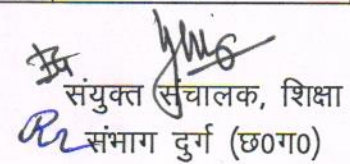 संयुक्त संचालक, शिक्षा
संभाग दुर्ग (छ0ग0)